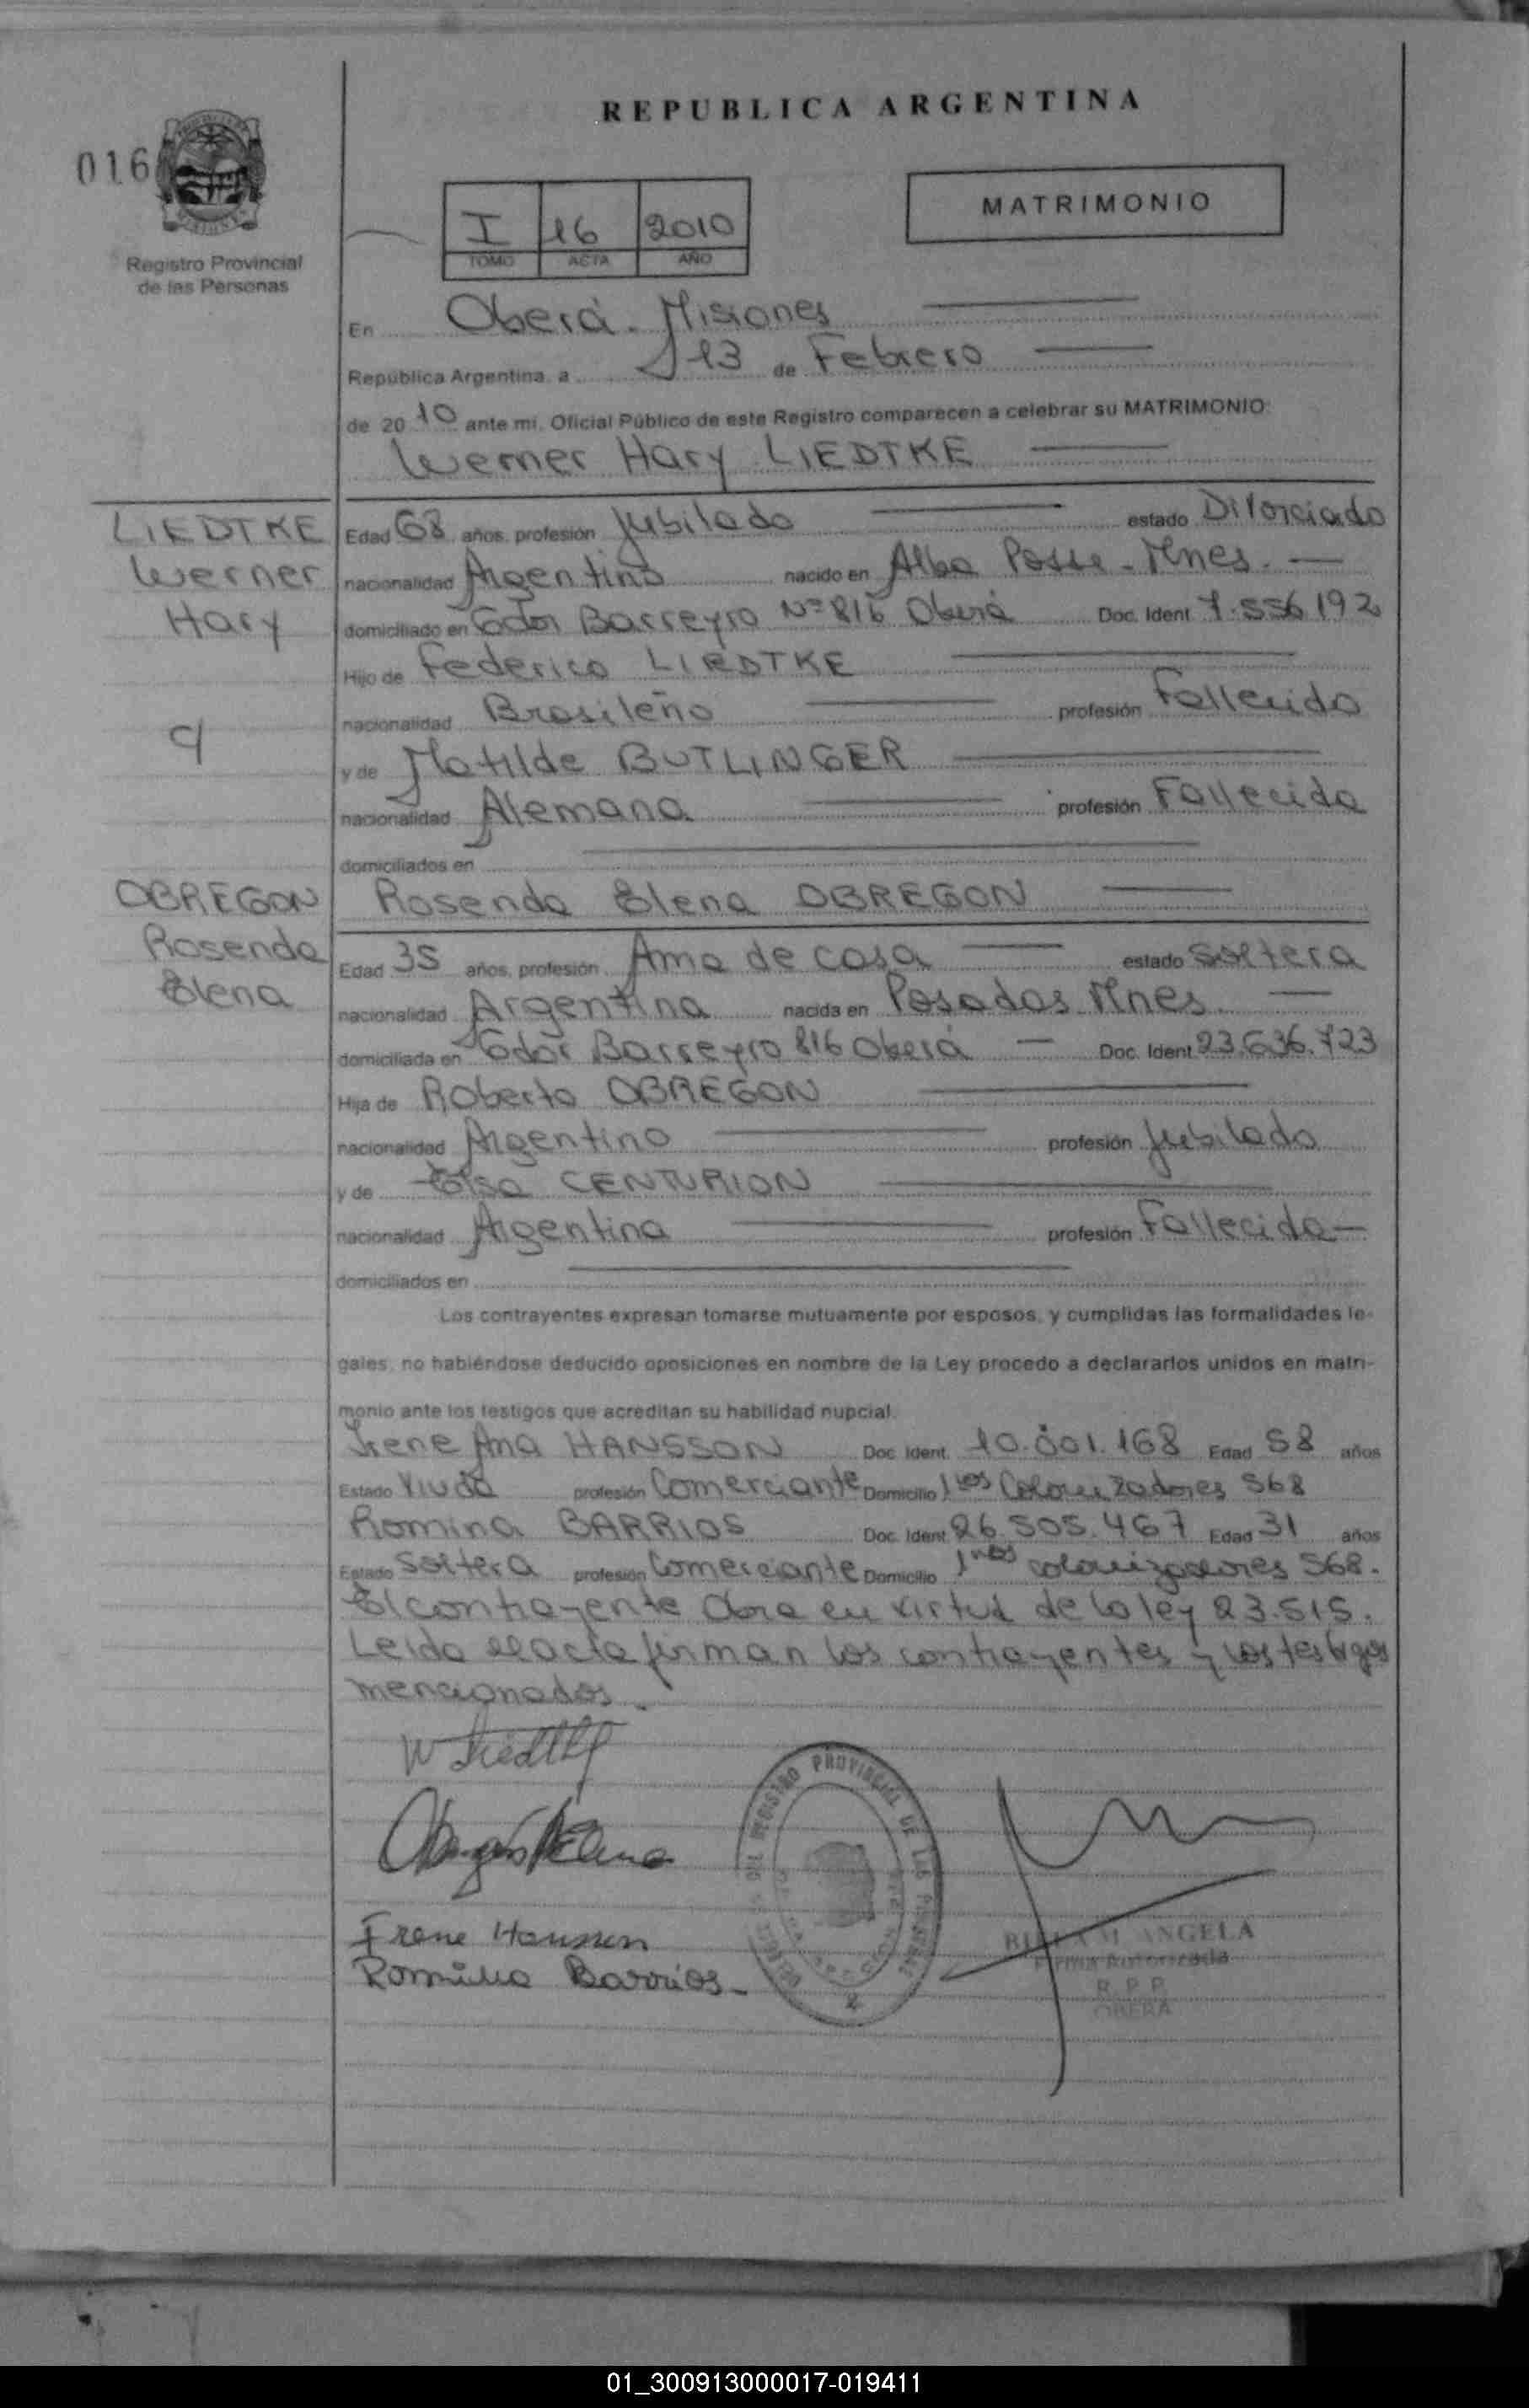 REPUBLICA ARGENTINA
016
MATRIMONIO
I 16 2010
TOMO ACTA AÑO
Registro Provincial
de las Personas
En Oberá - Misiones
República Argentina, a 13 de Febrero
de 20 10 ante mi, Oficial Público de este Registro comparecen a celebrar su MATRIMONIO:
Werner Hary LIEDTKE
LIEDTKE
Werner
Hary
Edad 68 años, profesión Jubilado estado Divorciado
nacionalidad Argentino nacido en Alba Posse - Mnes.
domiciliado en Gdor Barreyro Nº 816 Oberá Doc. Ident 7.556.192
Hijo de Federico LIEDTKE
nacionalidad Brasileño profesión Fallecido
y de Matilde BUTLINGER
nacionalidad Alemana profesión Fallecida
domiciliados en
OBREGON
Rosenda
Elena
Rosenda Elena OBREGON
Edad 35 años, profesión Ama de casa estado Soltera
nacionalidad Argentina nacida en Posadas Mnes.
domiciliada en Gdor Barreyro 816 Oberá Doc. Ident 23.636.723
Hija de Roberto OBREGON
nacionalidad Argentino profesión Jubilado
y de Elsa CENTURION
nacionalidad Argentina profesión Fallecida
domiciliados en
Los contrayentes expresan tomarse mutuamente por esposos, y cumplidas las formalidades le-
gales, no habiéndose deducido oposiciones en nombre de la Ley procedo a declararlos unidos en matri-
monio ante los testigos que acreditan su habilidad nupcial.
Irene Ana HANSSON Doc. Ident. 10.001.168 Edad 58 años
Estado Viuda profesión Comerciante Domicilio 1ros Colonizadores 568
Romina BARRIOS Doc. Ident. 26.505.467 Edad 31 años
Estado Soltera profesión Comerciante Domicilio 1ros colonizadores 568.
El contrayente obra en virtud de la ley 23.515.
Leida el acta firman los contrayentes y los testigos
mencionados.
W Liedtke
Obregón R Elena
Irene Hansson
Romina Barrios
REGISTRO PROVINCIAL DE LAS PERSONAS
M. ANGELA
Firma Autorizada
R. P. P.
OBERA
01_300913000017-019411